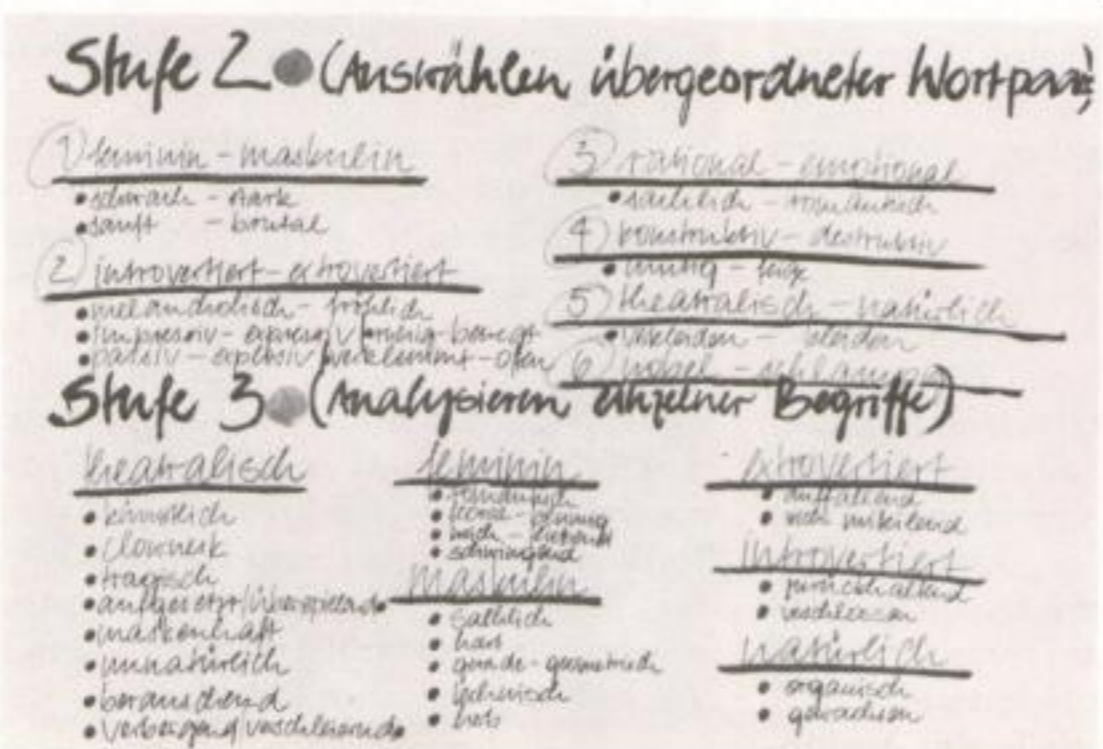 Stufe 2 (Auswählen übergeordneter Wortpaare)
1) feminin - maskulin
• schwach - stark
• sanft - brutal
2) introvertiert - extrovertiert
• melancholisch - fröhlich
• impressiv - expressiv ruhig - bewegt
• passiv - explosiv verklemmt - offen
3) rational - emotional
• sachlich - romantisch
4) konstruktiv - destruktiv
• mutig - feige
5) theatralisch - natürlich
• verkleiden - kleiden
6) nobel -
Stufe 3 (Analysieren einzelner Begriffe)
theatralisch
• künstlich
• clownesk
• tragisch
• aufgesetzt/überspielend
• maskenhaft
• unnatürlich
• berauschend
• verbergend/verschleiernd
feminin
• romantisch
• weich - fließend
• schwingend
maskulin
• sachlich
• hart
• gerade - geometrisch
• technisch
• herb
extrovertiert
• auffallend
• sich mitteilend
introvertiert
• zurückhaltend
• verschlossen
natürlich
• organisch
• gewachsen